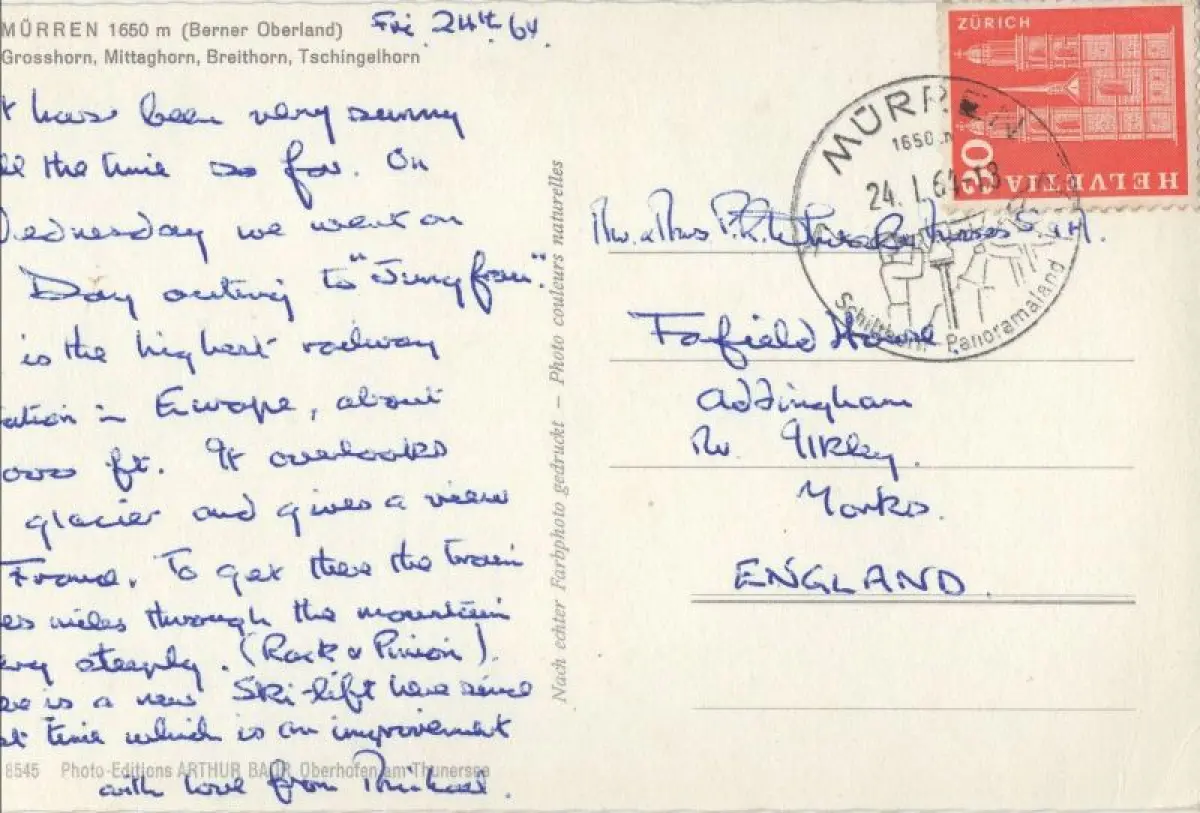 MÜRREN 1650 m (Berner Oberland)
Grosshorn, Mittaghorn, Breithorn, Tschingelhorn
Fri 24th 64.
t has been very sunny
ll the time so far. On
Wednesday we went on
Day outing to "Jungfrau".
is the highest railway
tation in Europe, about
000 ft. It overlooks
glacier and gives a view
France. To get there the train
es miles through the mountain
ery steeply. (Rack & Pinion).
ere is a new Ski-lift here since
st time which is an improvement
with love from Michael.
8545 Photo-Editions ARTHUR BAUR, Oberhofen am Thunersee
Nach echter Farbphoto gedruckt – Photo couleurs naturelles
ZÜRICH
HELVETIA
MÜRREN
1650 m
24. 1. 64-18
Schilthorn - Panoramaland
Mr. & Mrs
Farfield House.
Addingham
Nr. Ilkley.
Yorks.
ENGLAND